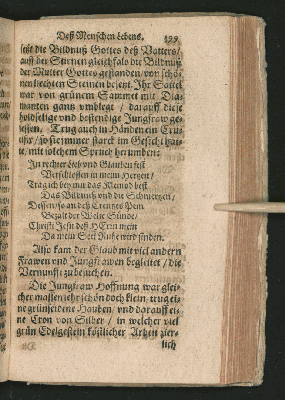 Deß Menschen Lebens. 199
seits die Bildnuß Gottes deß Vatters/
auff der Stirnen gleichfals die Bildnuß
der Mutter Gottes gestanden/ von schö-
nen liechten Steinen besetzt. Ihr Sattel
war von grünem Sammet mit Dia-
manten gantz umblegt / darauff diese
holdselige und bestendige Jungfraw ge-
sessen / Trug auch in Händen ein Cru-
cifix / so sie immer starck im Gesicht hat-
te, mit solchem Spruch herumben:
In rechter Lieb und Glauben fest
Verschlossen in meim Hertzen/
Trag ich bey mir das Kleinod best
Das Bildnuß und die Schmertzen/
Dessen / so an deß Creutzes Pein
Bezalt der Welte Sünde/
Christi Jesu deß HErren mein
Da mein Seel Ruhe wird finden.
Also kam der Glaub mit viel andern
Frawen und Jungfrawen begleitet / die
Vernunfft zu besuchen.
Die Jungfraw Hoffnung war glei-
cher massen sehr schön doch klein, trug ei-
ne grünseidene Hauben/ und darauff ei-
ne Cron von Silber / in welcher viel
grün Edelgestein köstlicher Arbeit zier-
lich